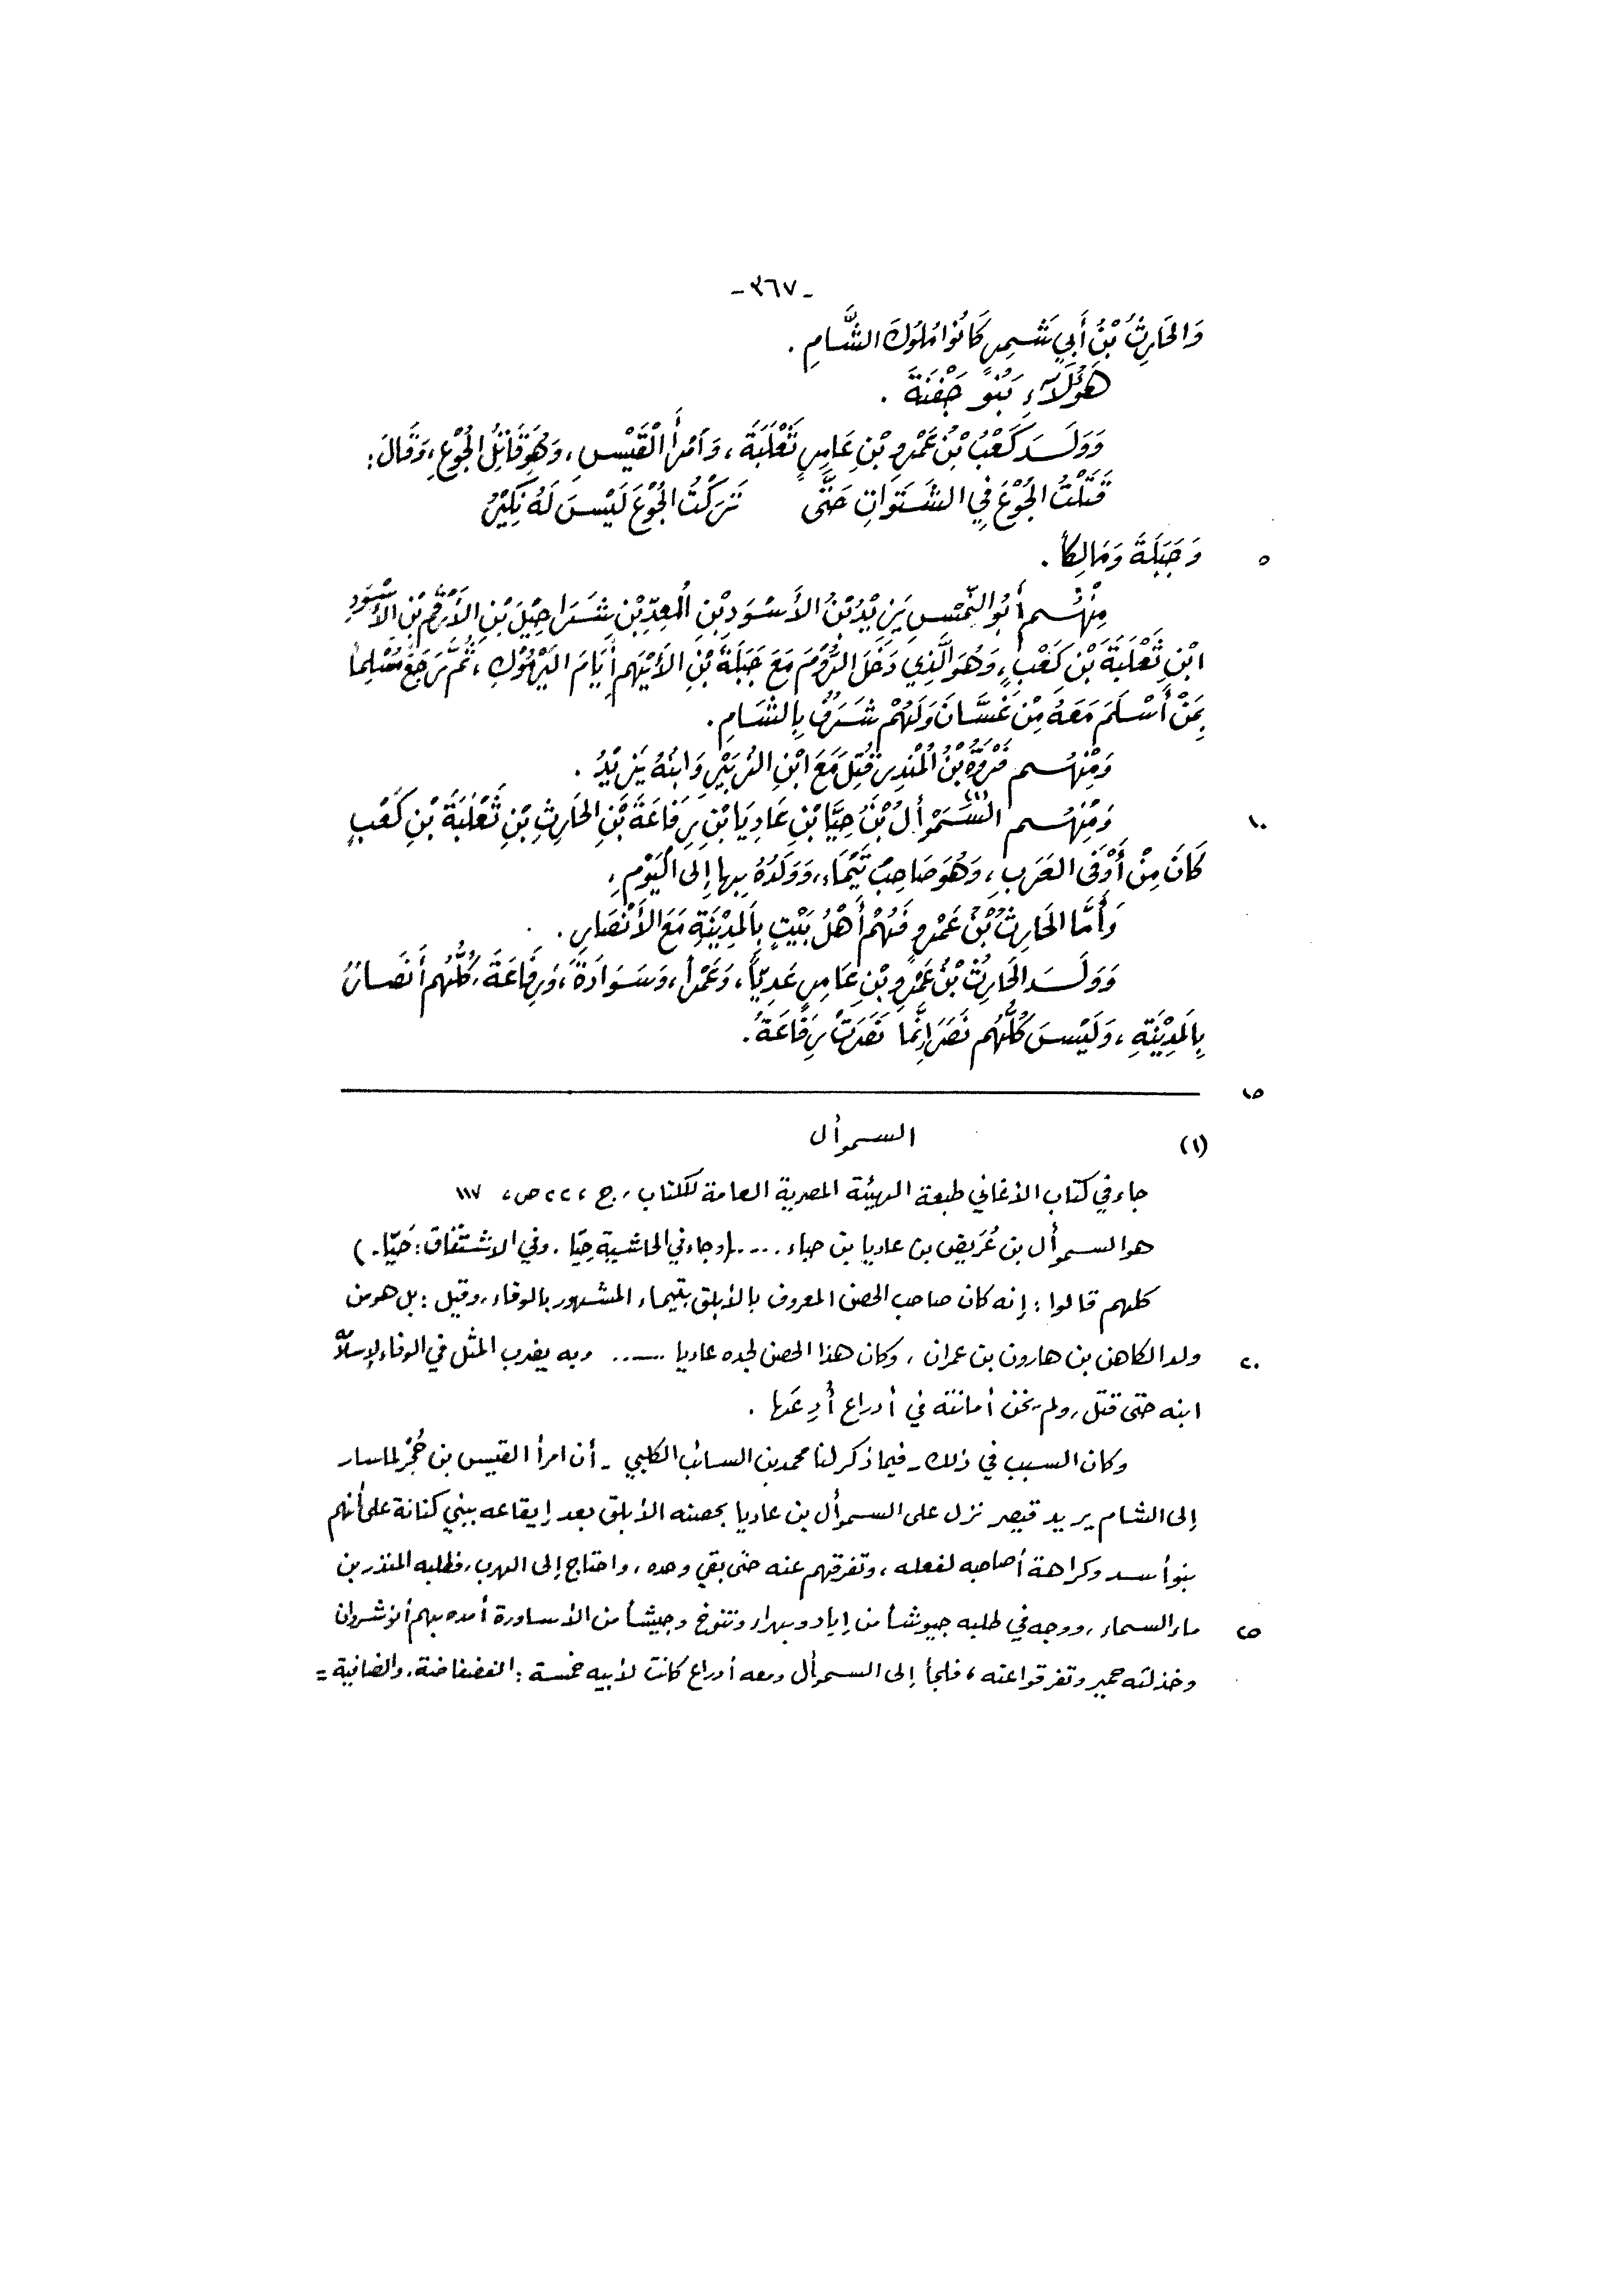 -٣٦٧-
وَالحَارِثُ بْنُ أَبِي شَمِرٍ كَانُوا مُلُوكَ الشَّامِ .
هَؤُلَاءِ بَنُو جَفْنَةَ .
وَوَلَدَ كَعْبُ بْنُ عَمْرِو بْنِ عَامِرٍ ثَعْلَبَةَ ، وَامْرَأَ الْقَيْسِ ، وَهُوَ قَاتِلُ الجُوْعِ ، وَقَالَ :
قَتَلْتُ الجُوْعَ فِي الشَّتَوَاتِ حَتَّى تَرَكْتُ الجُوْعَ لَيْسَ لَهُ نَكِيْرُ
وَجَبَلَةَ وَمَالِكاً . ٥
مِنْهُم أَبُو النَّمِسِ يَزِيْدُ بْنُ الأَسْوَدِ بْنِ المُعِدِّ بْنِ شَرَاحِيْلَ بْنِ الأَرْقَمِ بْنِ الأَسْوَدِ
ابْنِ ثَعْلَبَةَ بْنِ كَعْبٍ ، وَهُوَ الَّذِي دَخَلَ الرُّوْمَ مَعَ جَبَلَةَ بْنِ الأَيْهَمِ أَيَامَ اليَرْمُوْكِ ، ثُمَّ رَجَعَ مُسْلِماً
بِمَنْ أَسْلَمَ مَعَهُ مِنْ غَسَّانَ وَلَهُمْ شَرَفٌ بِالشَّامِ .
وَمِنْهُم فَرْوَةُ بْنُ المُنْذِرِ قُتِلَ مَعَ ابْنِ الزُبَيْرِ وَابْنُهُ يَزِيْدُ .
وَمِنْهُم السَّمَوْأَلُ (١) بْنُ حِيَّا بْنِ عَادِيَا بْنِ رِفَاعَةَ بْنِ الحَارِثِ بْنِ ثَعْلَبَةَ بْنِ كَعْبٍ ١٠
كَانَ مِنْ أَوْفَى العَرَبِ ، وَهُوَ صَاحِبُ تَيْمَاءَ ، وَوَلَدُهُ بِهَا إِلى اليَوْمِ ،
وَأَمَّا الحَارِثُ بْنُ عَمْرٍو فَهُمْ أَهْلُ بَيْتٍ بِالمَدِيْنَةِ مَعَ الأَنْصَارِ .
وَوَلَدَ الحَارِثُ بْنُ عَمْرِو بْنِ عَامِرٍ عَدِيّاً ، وَعَمْراً ، وَسَوَادَةَ ، وَرِفَاعَةَ ، كُلُّهُم أَنْصَارٌ
بِالمَدِيْنَةِ ، وَلَيْسَ كُلُّهُم نَصَرَ إِنَّمَا نَصَرَتْ رِفَاعَةُ .
١٥
(١) السموأل
جاء في كتاب الأغاني طبعة الهيئة المصرية العامة للكتاب ، ج ، ٢٢ ص ، ١١٧
هو السموأل بن عُرَيض بن عاديا بن حياء ..... (وجاء في الحاشية حِيّا . وفي الاشتقاق : حَيّا .)
كلهم قالوا : إنه كان صاحب الحصن المعروف بالأبلق بتيماء المشهور بالوفاء ، وقيل : بل هو من
ولد الكاهن بن هارون بن عمران ، وكان هذا الحصن لجده عاديا ..... وبه يضرب المثل في الوفاء لإسلامه ٢٠
ابنه حتى قتل ، ولم يخن أمانته في أدراع أُدِعَها .
وكان السبب في ذلك - فيما ذكر لنا محمد بن السائب الكلبي - أن امرأ القيس بن حُجْر لما سار
إلى الشام يريد قيصر نزل على السموأل بن عاديا بحصنه الأبلق بعد إيقاعه ببني كنانة على أنهم
بنو أسد وكراهة أصحابه لفعله ، وتفرقهم عنه حتى بقي وحده ، واحتاج إلى الهرب ، فطلبه المنذر بن
ماء السماء ، ووجه في طلبه جيوشاً من إياد وبهراء وتنوخ وجيشاً من الأساورة أمده بهم أنوشروان ٢٥
وخذلته حمير وتفرقوا عنه ، فلجأ إلى السموأل ومعه أدراع كانت لأبيه خمسة : الفضفاضة ، والضافية =